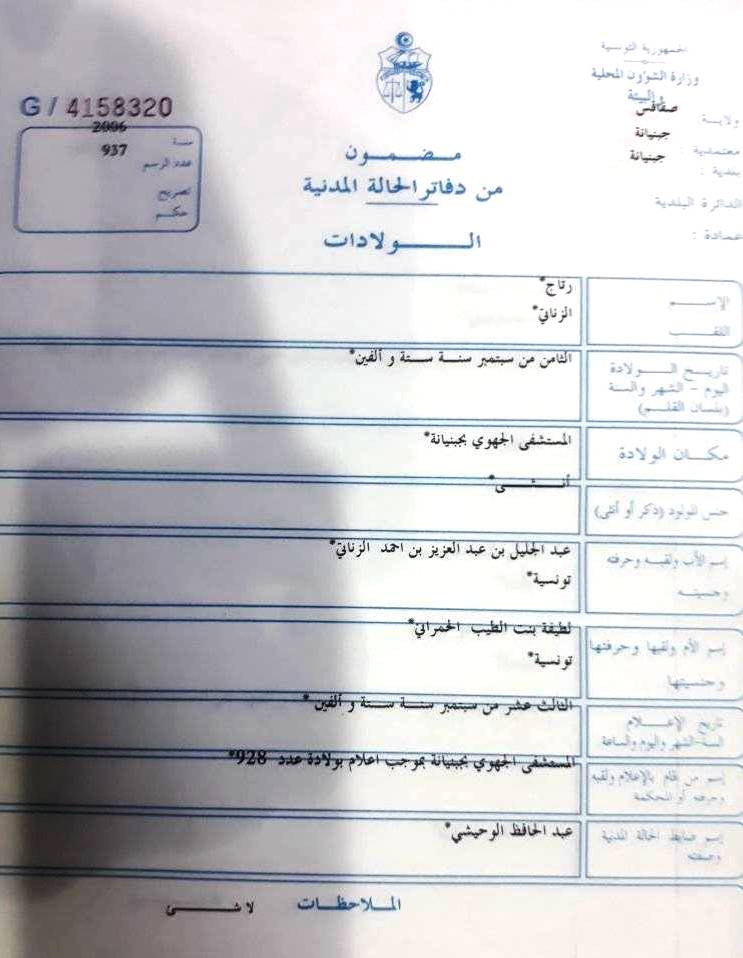 الجمهورية التونسية
وزارة الشؤون المحلية
والبيئة
ولاية : صفاقس
معتمدية : جبنيانة
بلدية : جبنيانة
الدائرة البلدية
عمادة :
G / 4158320
سنة 2006
عدد الرسم 937
تصريح
حكم
مضمون
من دفاتر الحالة المدنية
الولادات
الإسم رتاج*
اللقب الزناتي*
تاريخ الولادة الثامن من سبتمبر سنة ستة و ألفين*
اليوم - الشهر والسنة
(بلسان القلم)
مكان الولادة المستشفى الجهوي بجبنيانة*
جنس المولود (ذكر أو أنثى) أنثى*
إسم الأب ولقبه وحرفته عبد الجليل بن عبد العزيز بن احمد الزناتي*
وجنسيته تونسية*
إسم الأم ولقبها وحرفتها لطيفة بنت الطيب الحمراني*
وجنسيتها تونسية*
تاريخ الإعلام الثالث عشر من سبتمبر سنة ستة و ألفين*
السنة-الشهر واليوم والساعة
إسم من قام بالإعلام ولقبه المستشفى الجهوي بجبنيانة بموجب اعلام بولادة عدد 928*
وحرفته أو المحكمة
إسم ضابط الحالة المدنية عبد الحافظ الوحيشي*
وصفته
الملاحظات لا شئ